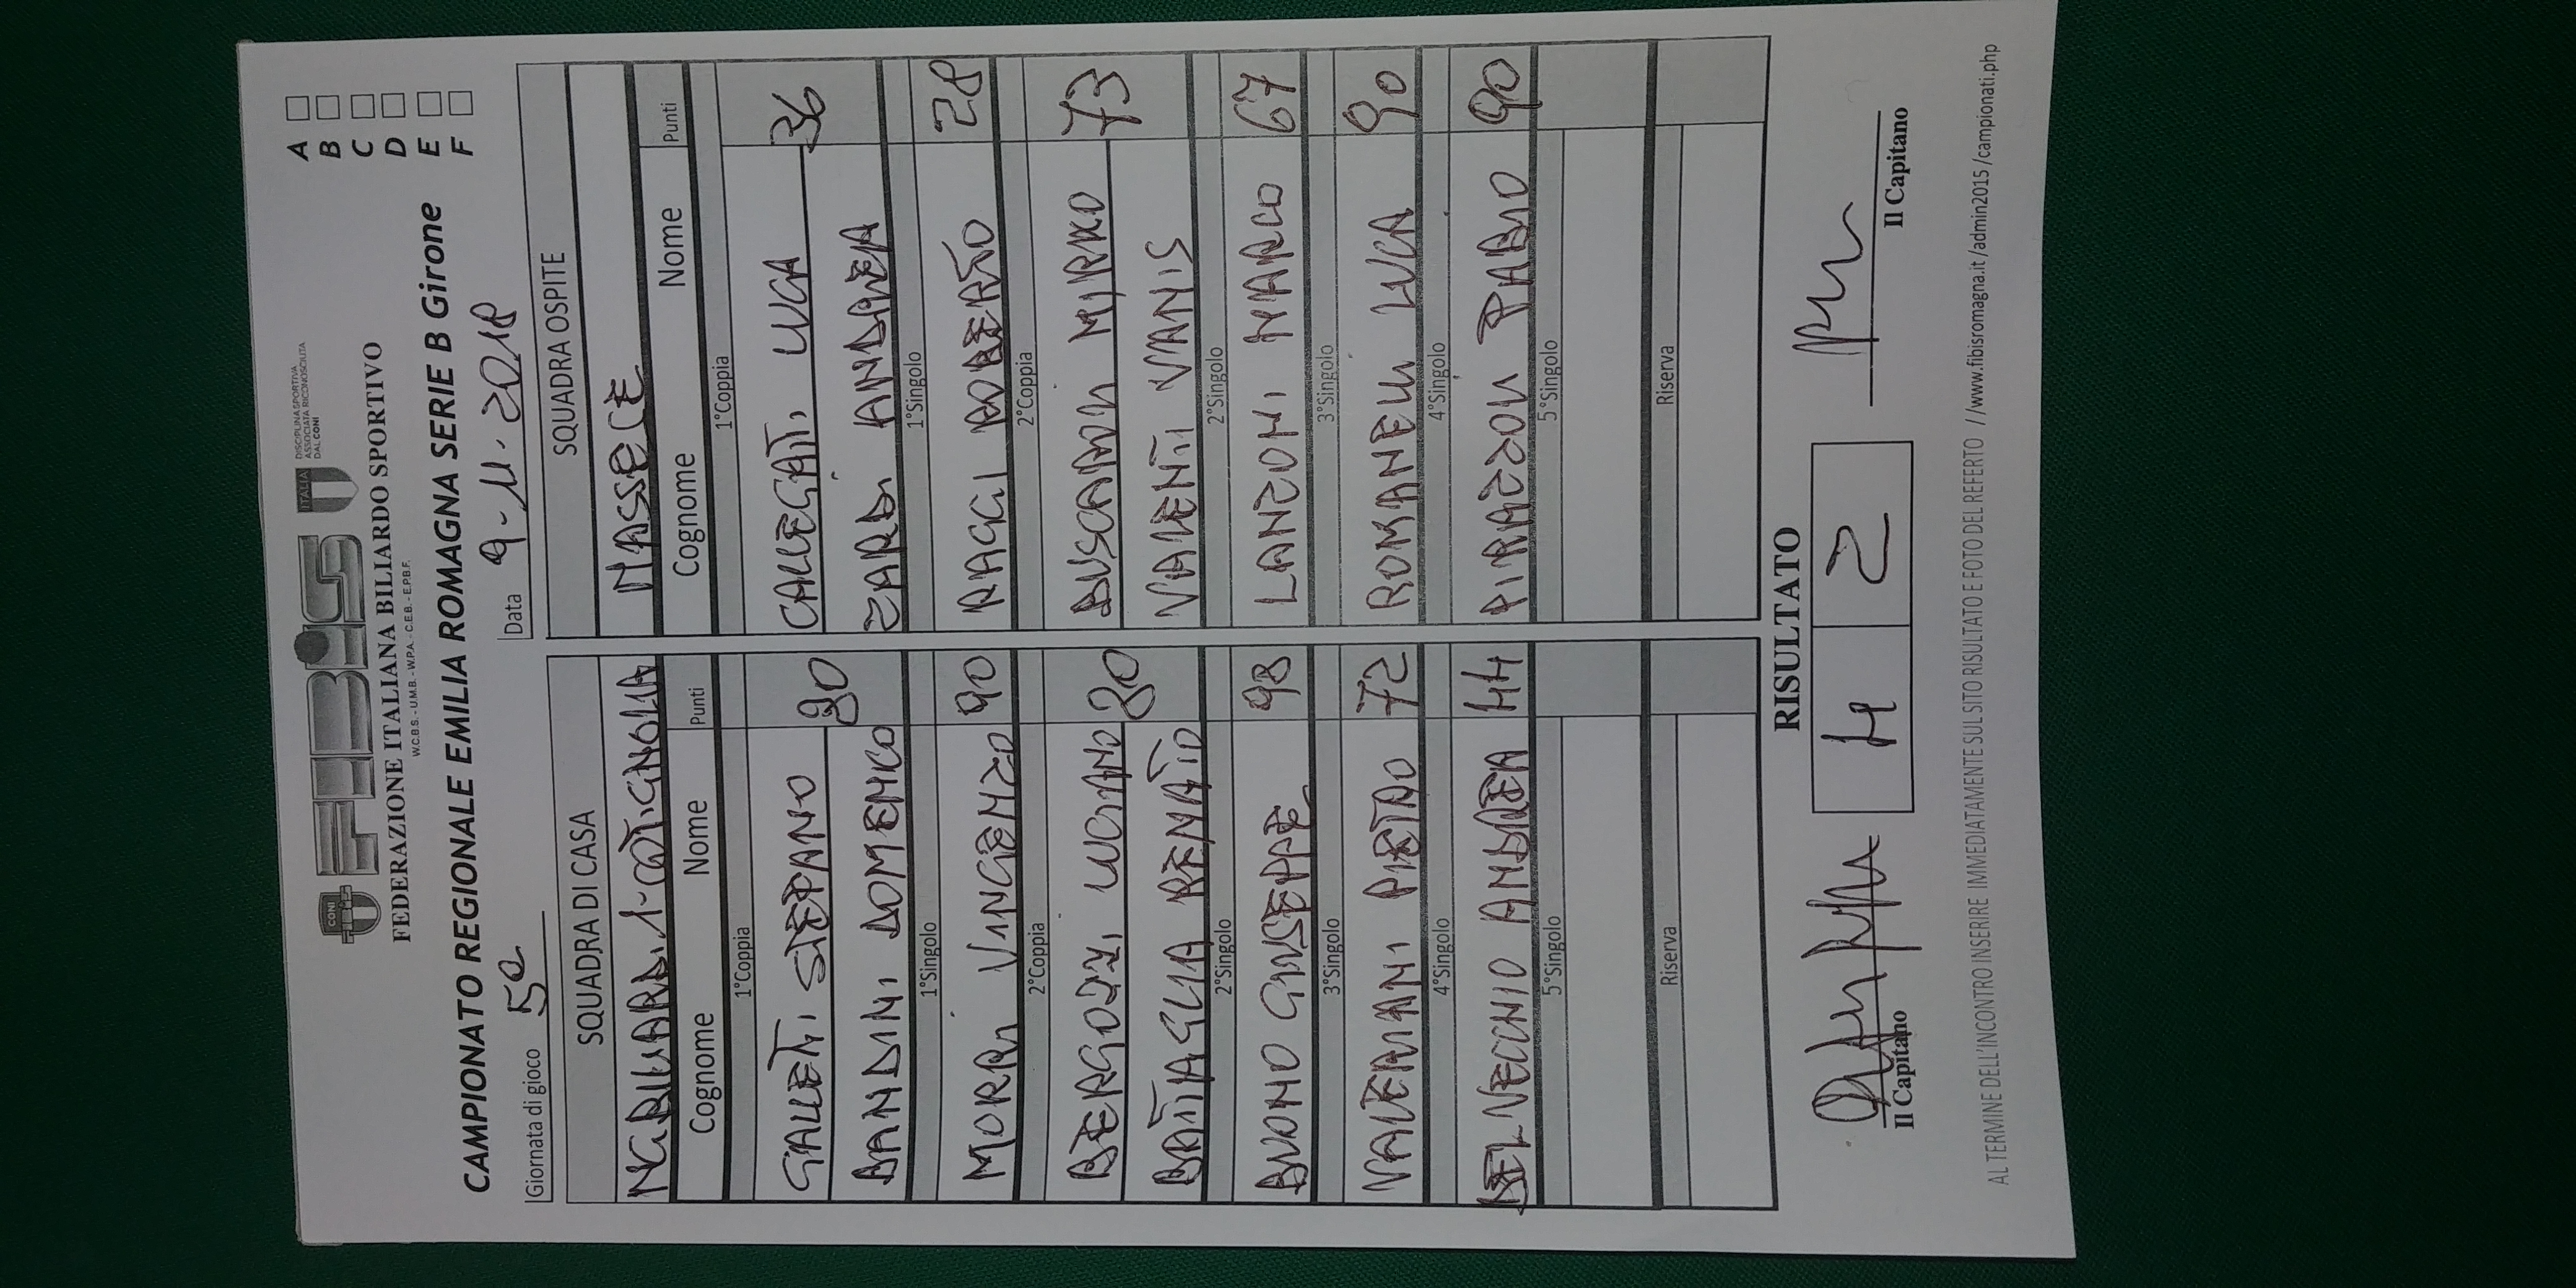 CONI
FIBiS
ITALIA
DISCIPLINA SPORTIVA
ASSOCIATA RICONOSCIUTA
DAL CONI
FEDERAZIONE ITALIANA BILIARDO SPORTIVO
W.C.B.S. - U.M.B. - W.P.A. - C.E.B. - E.P.B.F.
CAMPIONATO REGIONALE EMILIA ROMAGNA SERIE B Girone
A
B
C
D
E
F
Giornata di gioco 5a
Data 9-11-2018
SQUADRA DI CASA SQUADRA OSPITE
MASSESE
Cognome Nome Punti Cognome Nome Punti
1°Coppia 1°Coppia
GALLETTI STEFANO 80 CALLEGATI LUCA 36
BANDINI DOMENICO ZARDI ANDREA
1°Singolo 1°Singolo
MORRI VINCENZO 90 RAGGI ROBERTO 28
2°Coppia 2°Coppia
BERGOZZI LUCIANO 80 BUSCAROLI MIRKO 73
BATTAGLIA RENATO VALENTI VANIS
2°Singolo 2°Singolo
BUONO GIUSEPPE 98 LANZONI MARCO 67
3°Singolo 3°Singolo
VALERIANI PIETRO 72 ROMANELLI LUCA 90
4°Singolo 4°Singolo
DELVECCHIO ANDREA 44 PIRAZZOLI PABLO 90
5°Singolo 5°Singolo
Riserva Riserva
RISULTATO
4 2
Il Capitano Il Capitano
AL TERMINE DELL'INCONTRO INSERIRE IMMEDIATAMENTE SUL SITO RISULTATO E FOTO DEL REFERTO /www.fibisromagna.it /admin2015 /campionati.php